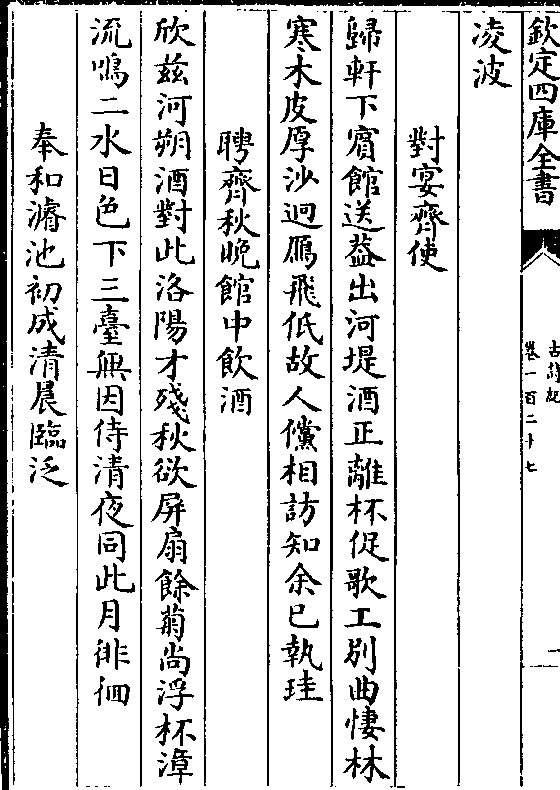 欽定四庫全書
古詩紀
卷一百二十七
一
凌波
對宴齊使
歸軒下賔館送葢出河堤酒正離杯促歌工别曲悽林
寒木皮厚沙迥鴈飛低故人儻相訪知余已執珪
聘齊秋晩館中飲酒
欣兹河朔酒對此洛陽才殘秋欲屏扇餘菊尚浮杯漳
流鳴二水日色下三臺無因侍清夜同此月徘徊
奉和濬池初成清晨臨泛